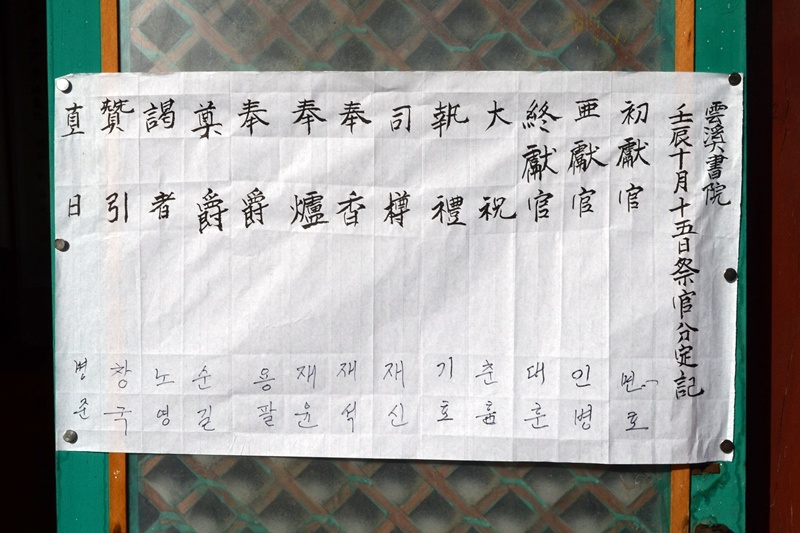 雲溪書院
壬辰十月十五日祭官分定記
初獻官 면호
亜獻官 인병
終獻官 대훈
大祝 춘흠
執禮 기호
司樽 재신
奉香 재석
奉爐 재윤
奉爵 용팔
奠爵 순길
謁者 노영
贊引 창국
直日 병준